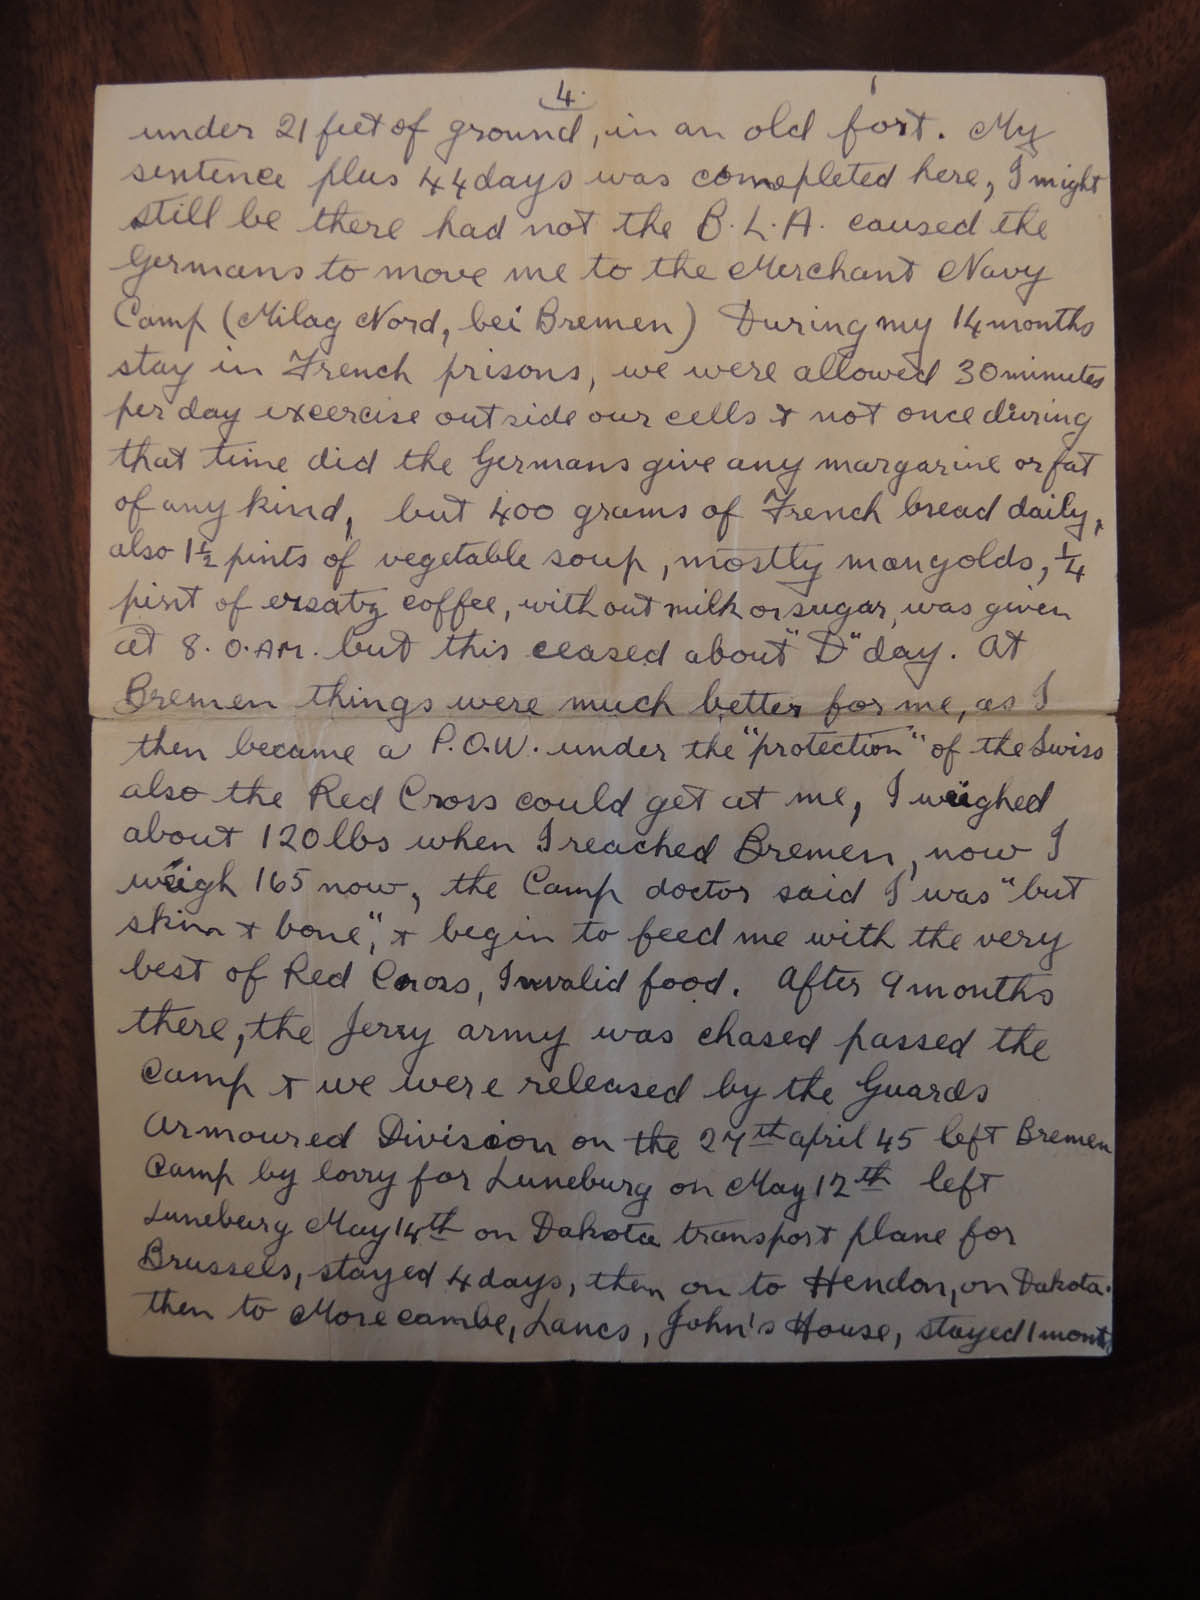 4.
under 21 feet of ground, in an old fort. My
sentence plus 44 days was comepleted here, I might
still be there had not the B.L.A. caused the
Germans to move me to the Merchant Navy
Camp (Milag Nord, bei Bremen) During my 14 months
stay in French prisons, we were allowed 30 minutes
per day excercise outside our cells & not once during
that time did the Germans give any margarine or fat
of any kind, but 400 grams of French bread daily,
also 1½ pints of vegetable soup, mostly mangolds, ¼
pint of ersatz coffee, without milk or sugar, was given
at 8.0.AM. but this ceased about "D" day. At
Bremen things were much better for me, as I
then became a P.O.W. under the "protection" of the Swiss
also the Red Cross could get at me, I weighed
about 120 lbs when I reached Bremen, now I
weigh 165 now, the Camp doctor said I was "but
skin & bone", & begin to feed me with the very
best of Red Cross, Invalid food. After 9 months
there, the Jerry army was chased passed the
Camp & we were released by the Guards
Armoured Division on the 27th april 45 left Bremen
Camp by lorry for Luneburg on May 12th left
Luneburg May 14th on Dakota transport plane for
Brussels, stayed 4 days, then on to Hendon, on Dakota.
then to Morecambe, Lancs, John's House, stayed 1 mont